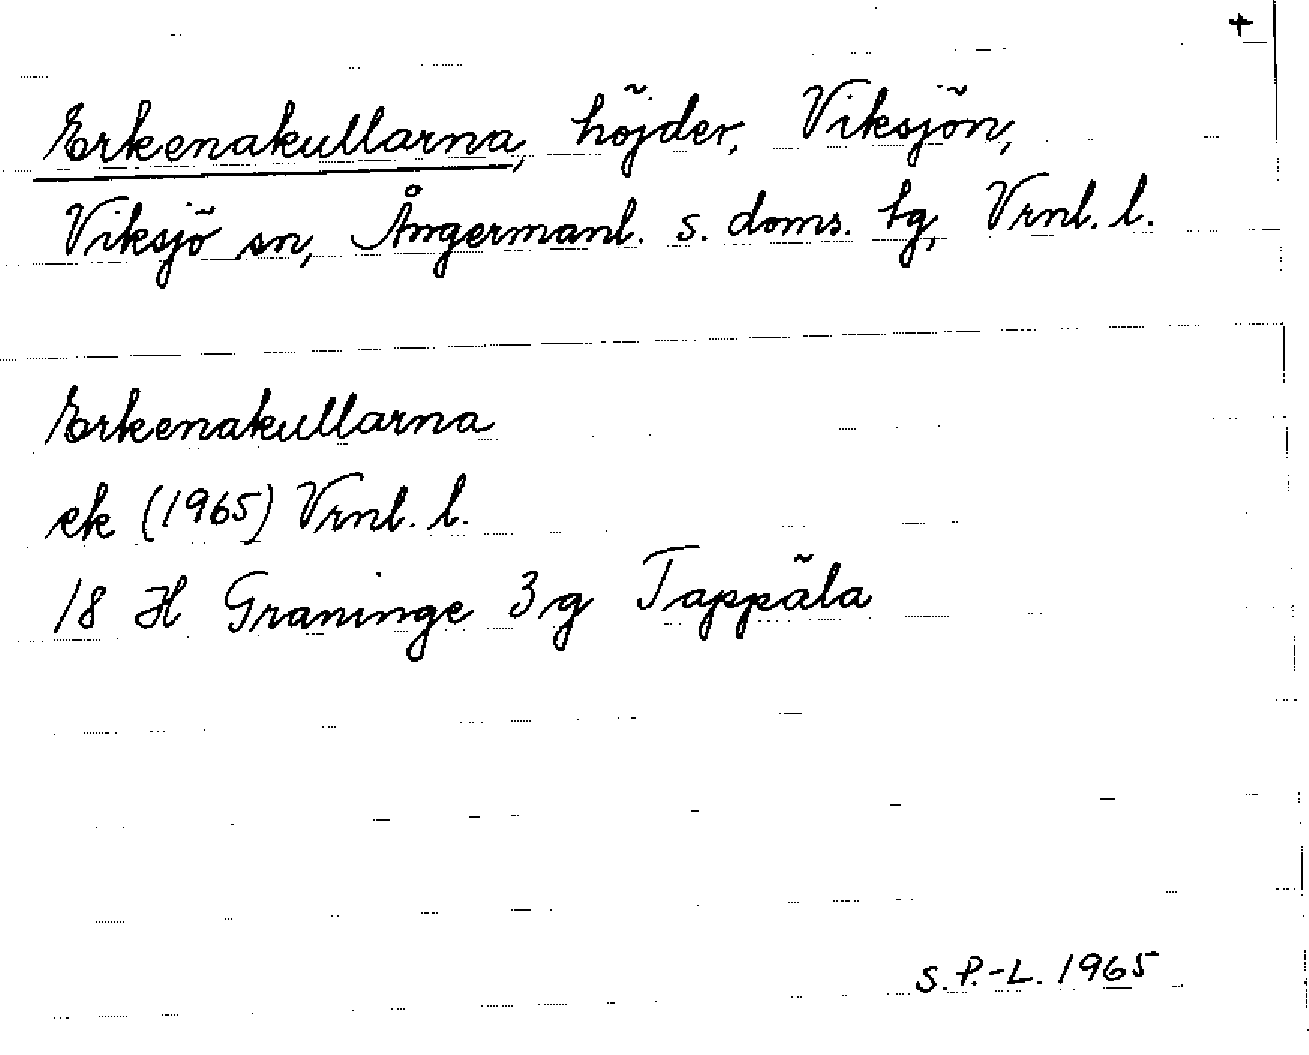 +
Erkenakullarna, höjder, Viksjön,
Viksjö sn, Ångermanl. s. doms. tg, Vrnl. l.
Erkenakullarna
ek (1965) Vrnl. l.
18 H Graninge 3 g Tappäla
S. P.-L. 1965